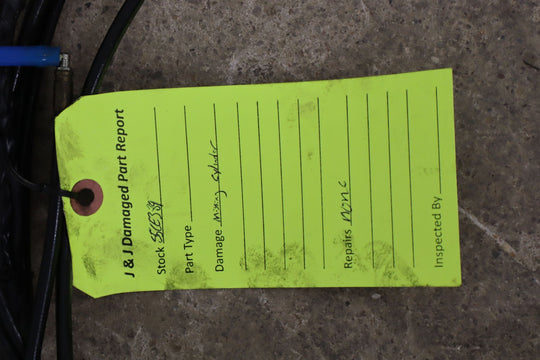 J & J Damaged Part Report
Stock
Part Type
Damage mixing cylinder
Repairs none
Inspected By